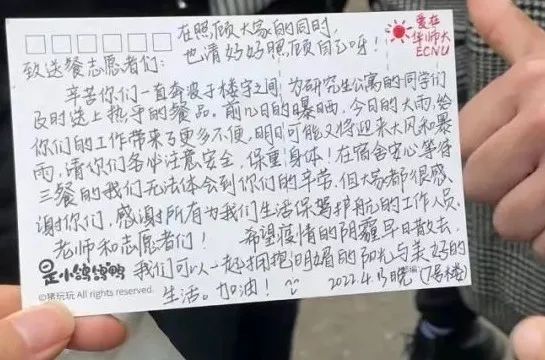 在照顾大家的同时,
也请好好照顾自己呀!
爱在
华师大
ECNU
致送餐志愿者们:
辛苦你们一直奔波于楼宇之间,为研究生公寓的同学们
及时送上热乎的餐品。前几日的曝晒,今日的大雨,给
你们的工作带来了更多不便,明日可能又将迎来大风和暴
雨,请你们务必注意安全,保重身体!在宿舍安心等待
三餐的我们无法体会到你们的辛劳,但大家都很感
谢你们,感谢所有为我们生活保驾护航的工作人员、
老师和志愿者们! 希望疫情的阴霾早日散去,
我们可以一起拥抱明媚的阳光与美好的
生活。加油!
2022.4.13晚 (7号楼)
是小鸽鸽鸭
©猪玩玩 All rights reserved.